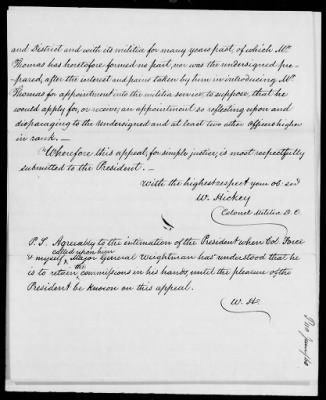 and District and with its militia for many years past, of which Mr
Thomas has heretofore formed no part, nor was the undersigned pre-
pared, after the interest and pains taken by him in introducing Mr
Thomas for appointment into the militia service to suppose, that he
would apply for, or receive, an appointment so reflecting upon and
disparaging to the undersigned and at least two other officers higher
in rank. —
Wherefore this appeal, for simple justice, is most respectfully
submitted to the President. —
With the highest respect your ob. sert
W. Hickey
Colonel Militia D.C.
P.S. Agreeably to the intimation of the President when Col. Force
called upon him
& myself ^ Major General Weightman has understood that he
the
is to retain ^ commissions in his hands, until the pleasure of the
President be known on this appeal.
W. H.